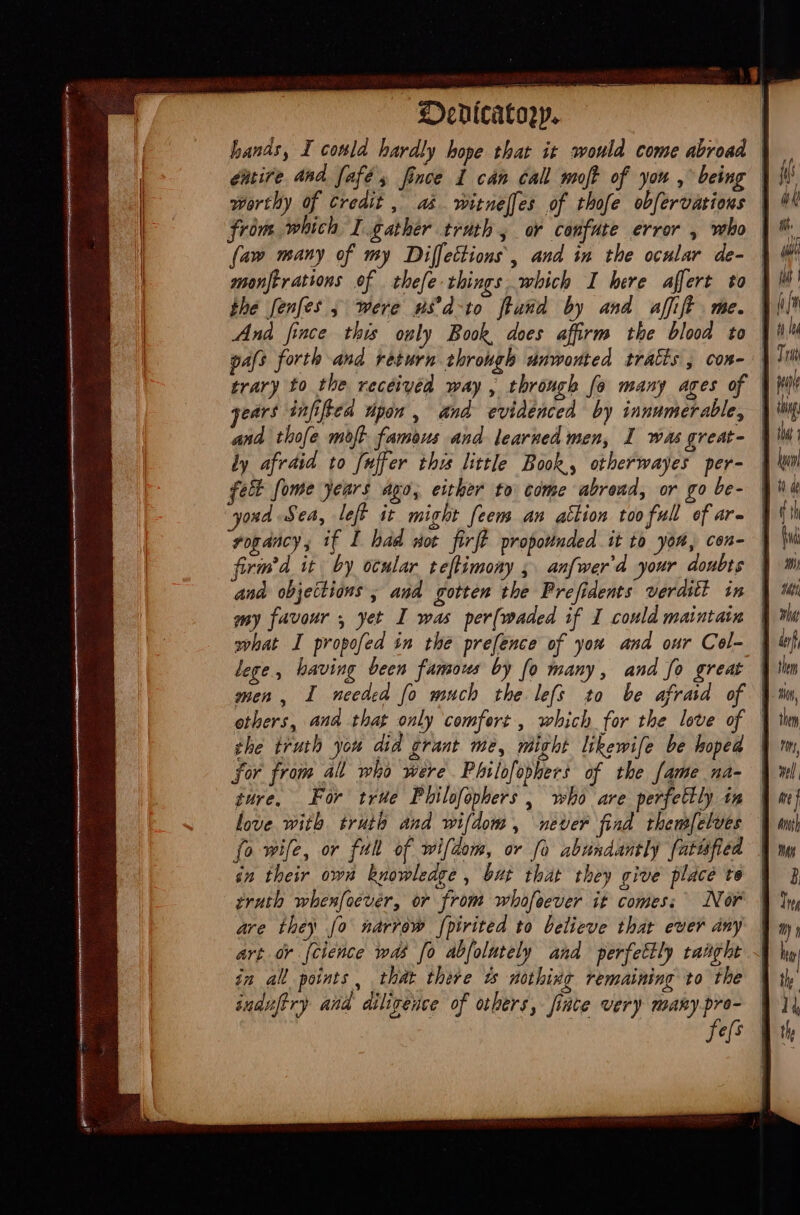 Dedicatory.
hands, I could hardly hope that it would come abroad
entire and ſafe, ſince I can call moſt of you, being
worthy of credit, as witneſſes of thoſe obſervations
from which I gather truth, or confute error, who
ſaw many of my Diſſections, and in the ocular de-
monſtrations of theſe things which I here aſſert to
the ſenſes, were us'd to ſtand by and aſſiſt me.
And ſince this only Book does affirm the blood to
paſs forth and return through unwonted tracts, con-
trary to the received way, through ſo many ages of
years inſiſted upon, and evidenced by innumerable,
and thoſe moſt famous and learned men, I was great-
ly afraid to ſuffer this little Book, otherwayes per-
fect ſome years ago, either to come abroad, or go be-
yond Sea, leſt it might ſeem an action too full of ar-
rogancy, if I had not firſt propounded it to you, con-
firm'd it by ocular teſtimony, anſwer'd your doubts
and objections, and gotten the Preſidents verdict in
my favour; yet I was perſwaded if I could maintain
what I propoſed in the preſence of you and our Col-
lege, having been famous by ſo many, and ſo great
men, I needed ſo much the leſs to be afraid of
others, and that only comfort, which for the love of
the truth you did grant me, might likewiſe be hoped
for from all who were Philoſophers of the ſame na-
ture. For true Philoſophers, who are perfectly in
love with truth and wiſdom, never find themſelves
ſo wiſe, or full of wiſdom, or ſo abundantly ſatisfied
in their own knowledge, but that they give place to
truth whenſoever, or from whoſoever it comes. Nor
are they ſo narrow ſpirited to believe that ever any
art or ſcience was ſo abſolutely and perfectly taught
in all points, that there is nothing remaining to the
induſtry and diligence of others, ſince very many pro-
feſs